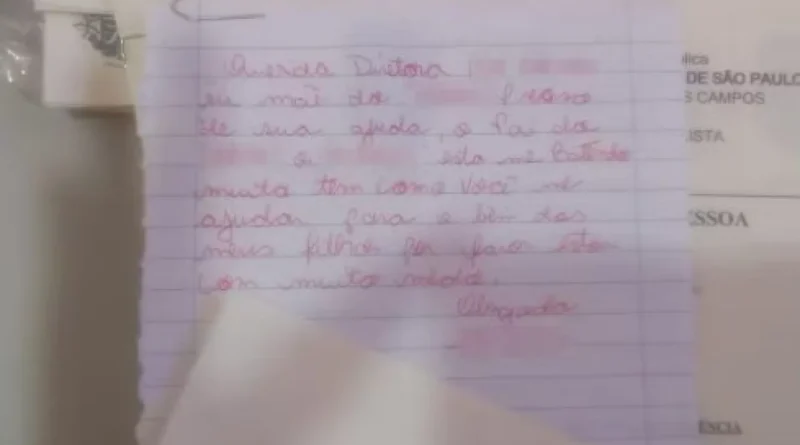 Querida Diretora
eu mai do preciso
de sua ajuda, o Pai da
e esta mê Batendo
muito têm como Você mê
ajudar para o bêm dos
meus filhos por favor estou
com muito mêdo.
Obrigada
lica
DE SÃO PAULO
S CAMPOS
ISTA
ESSOA
ÊNCIA